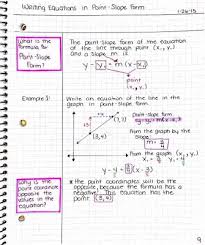 Writing Equations in Point-Slope Form
1-26-15
What is the
formula for
Point-Slope
Form?
The point-slope form of the equation
of the line through point (x₁, y₁)
and a slope m is
y - y₁ = m (x - x₁)
point
(x₁, y₁)
Example 1:
Write an equation of the line in the
graph in point-slope form.
Point-slope form
From the graph the
slope is
(3,4)
From the graph (x₁, y₁)
y - 4 = (x - 3)
Why is the
point coordinate
opposite the
values in the
equation?
* The point coordinates will be the
opposite, because the formula has a
negative! This equation has the
point (3,4)
9